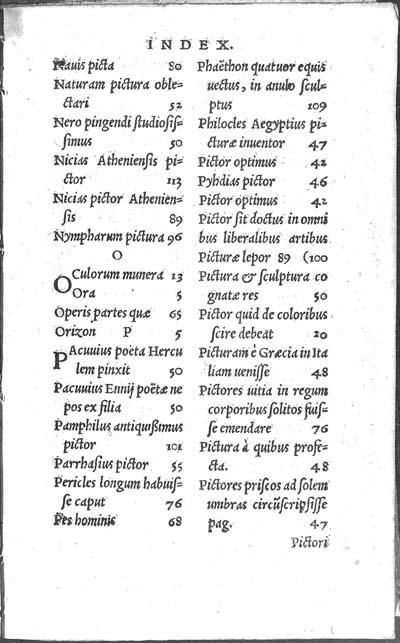 INDEX.
Nauis picta 80
Naturam pictura oble=
ctari 52
Nero pingendi studiosis=
simus 50
Nicias Atheniensis pi=
ctor 113
Nicias pictor Athenien=
sis 89
Nympharum pictura 96
O
OCulorum munera 13
Ora 5
Operis partes quæ 65
Orizon P 5
PAcuuius poëta Hercu
lem pinxit 50
Pacuuius Ennij poëtæ ne
pos ex filia 50
Pamphilus antiquißimus
pictor 101
Parrhasius pictor 55
Pericles longum habuis=
se caput 76
Pes hominis 68
Phaëthon quatuor equis
uectus, in anulo scul=
ptus 109
Philocles Aegyptius pi=
cturæ inuentor 47
Pictor optimus 42
Pyhdias pictor 46
Pictor optimus 42
Pictor sit doctus in omni
bus liberalibus artibus
Picturæ lepor 89 (100
Pictura & sculptura co
gnatæ res 50
Pictor quid de coloribus
scire debeat 20
Picturam è Græcia in Ita
liam uenisse 48
Pictores uitia in regum
corporibus solitos fuis=
se emendare 76
Pictura à quibus profe=
cta. 48
Pictores priscos ad solem
umbras circũscripsisse
pag. 47
Pictori